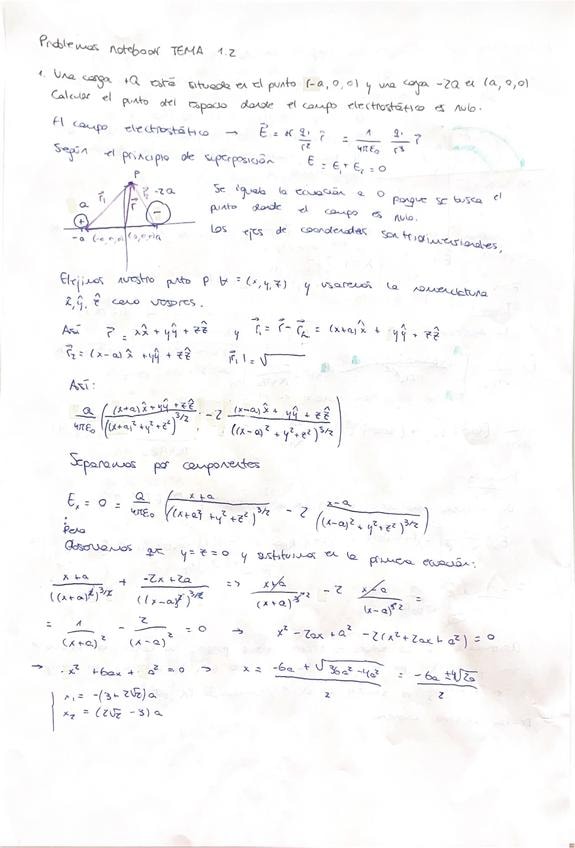 Problemas notebook TEMA 1.2
1. Una carga +Q está situada en el punto (-a, 0, 0) y una carga -2Q en (a, 0, 0)
Calcular el punto del espacio donde el campo electrostático es nulo.
El campo electrostático → E⃗ = K q₁/r² r̂ = 1/4πε₀ q₁/r³ r⃗
Según el principio de superposición E = E₁ + E₂ = 0
P
a r⃗₁ r⃗ r⃗₂ -2Q
+ −
-a (-a,0,0) (a,0,0) a
Se iguala la ecuación a 0 porque se busca el
punto donde el campo es nulo.
Los ejes de coordenadas son tridimensionales,
Elejimos nuestro punto P ∀ = (x, y, z) y usaremos la nomenclatura
x̂, ŷ, ẑ como vesores.
Así r⃗ = xx̂ + yŷ + zẑ y r⃗₁ = r⃗ - r⃗₂ = (x+a)x̂ + yŷ + zẑ
r⃗₂ = (x-a)x̂ + yŷ + zẑ |r⃗₁| = √
Así:
Q/4πε₀ ( (x+a)x̂ + yŷ + zẑ / ((x+a)² + y² + z²)^3/2 - 2 (x-a)x̂ + yŷ + zẑ / ((x-a)² + y² + z²)^3/2 )
Separamos por componentes
Eₓ = 0 = Q/4πε₀ ( x+a / ((x+a)² + y² + z²)^3/2 - 2 x-a / ((x-a)² + y² + z²)^3/2 )
Para
Observamos que y = z = 0 y sustituimos en la primera ecuación:
x+a / ((x+a)²)^3/2 + -2x+2a / ((x-a)²)^3/2 => x+a / (x+a)^3 2 - 2 x-a / (x-a)^3 2 =
= 1/(x+a)² - 2/(x-a)² = 0 → x² - 2ax + a² - 2(x² + 2ax + a²) = 0
→ x² + 6ax + a² = 0 → x = -6a ± √36a² - 4a² / 2 = -6a ± 4√2a / 2
x₁ = -(3 + 2√2)a
x₂ = (2√2 - 3)a